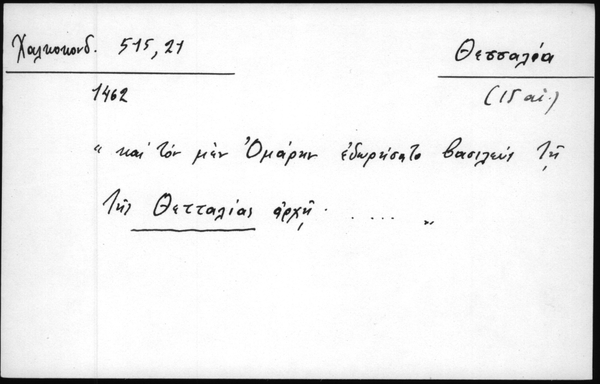 Χαλκοκονδ. 515,21 Θεσσαλία
1462 (15 αἰ.)
"καὶ τὸν μὲν Ὀμάρην ἐδωρήσατο βασιλεὺς τῇ
τῆς Θετταλίας ἀρχῇ. . . . . "